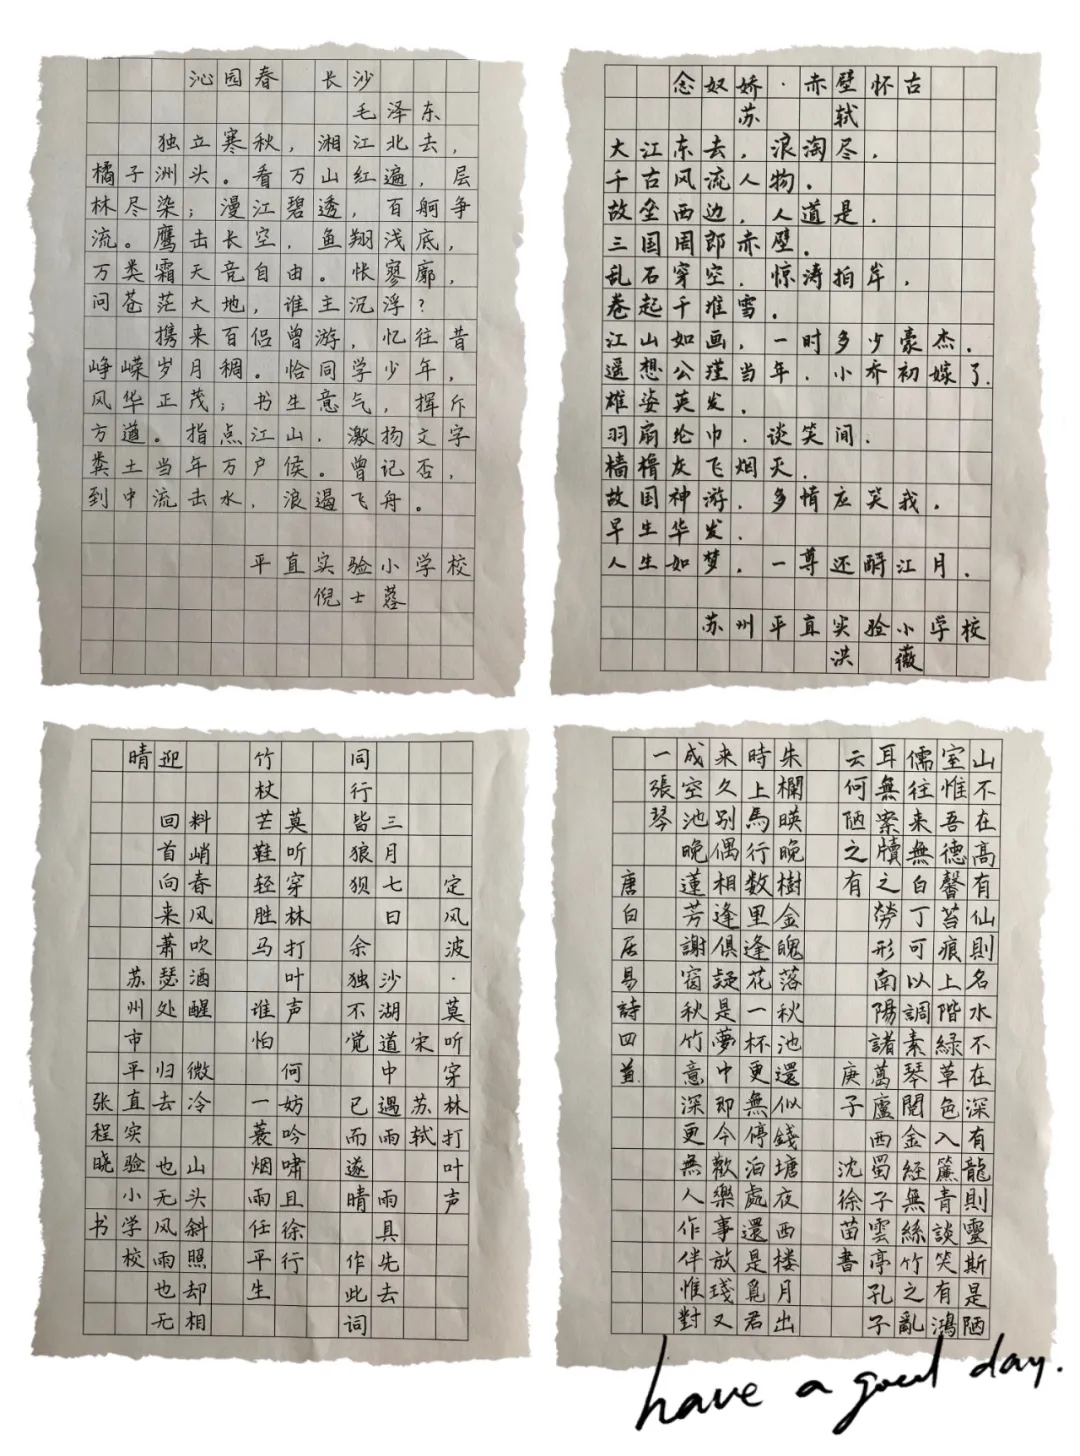 沁园春 长沙
毛泽东
独立寒秋，湘江北去，
橘子洲头。看万山红遍，层
林尽染；漫江碧透，百舸争
流。鹰击长空，鱼翔浅底，
万类霜天竞自由。怅寥廓，
问苍茫大地，谁主沉浮？
携来百侣曾游，忆往昔
峥嵘岁月稠。恰同学少年，
风华正茂；书生意气，挥斥
方遒。指点江山，激扬文字
粪土当年万户侯。曾记否，
到中流击水，浪遏飞舟。
平直实验小学校
倪士蓉
念奴娇·赤壁怀古
苏轼
大江东去，浪淘尽，
千古风流人物。
故垒西边，人道是，
三国周郎赤壁。
乱石穿空，惊涛拍岸，
卷起千堆雪。
江山如画，一时多少豪杰。
遥想公瑾当年，小乔初嫁了，
雄姿英发，
羽扇纶巾，谈笑间，
樯橹灰飞烟灭，
故国神游，多情应笑我，
早生华发，
人生如梦，一尊还酹江月。
苏州平直实验小学校
洪薇
定风波·莫听穿林打叶声
宋 苏轼
三月七日 沙湖道中遇雨 雨具先去
同行皆狼狈 余独不觉 已而遂晴 作此词
莫听穿林打叶声 何妨吟啸且徐行
竹杖芒鞋轻胜马 谁怕 一蓑烟雨任平生
料峭春风吹酒醒 微冷 山头斜照却相
迎 回首向来萧瑟处 归去 也无风雨也无
晴 苏州市平直实验小学校
张程晓 书
山不在高有仙則名水不在深有龍則靈斯是陋
室惟吾德馨苔痕上階緑草色入簾青談笑有鴻
儒往来無白丁可以調素琴閲金經無絲竹之亂
耳無案牘之勞形南陽諸葛廬西蜀子雲亭孔子
云何陋之有 庚子 沈徐苗書
朱欄暎晚樹金魄落秋池還似錢塘夜西楼月出
時上馬行数里逢花一杯更無停泊處還是覓君
来久別偶相逢俱疑是夢中即今歡樂事放琖又
成空池晚蓮芳謝窗秋竹意深更無人作伴惟對
一張琴
唐白居易詩四首
have a good day.